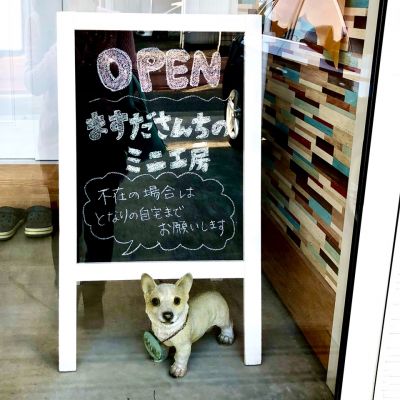 OPEN
ますださんちの
ミニ工房
不在の場合は
となりの自宅まで
お願いします